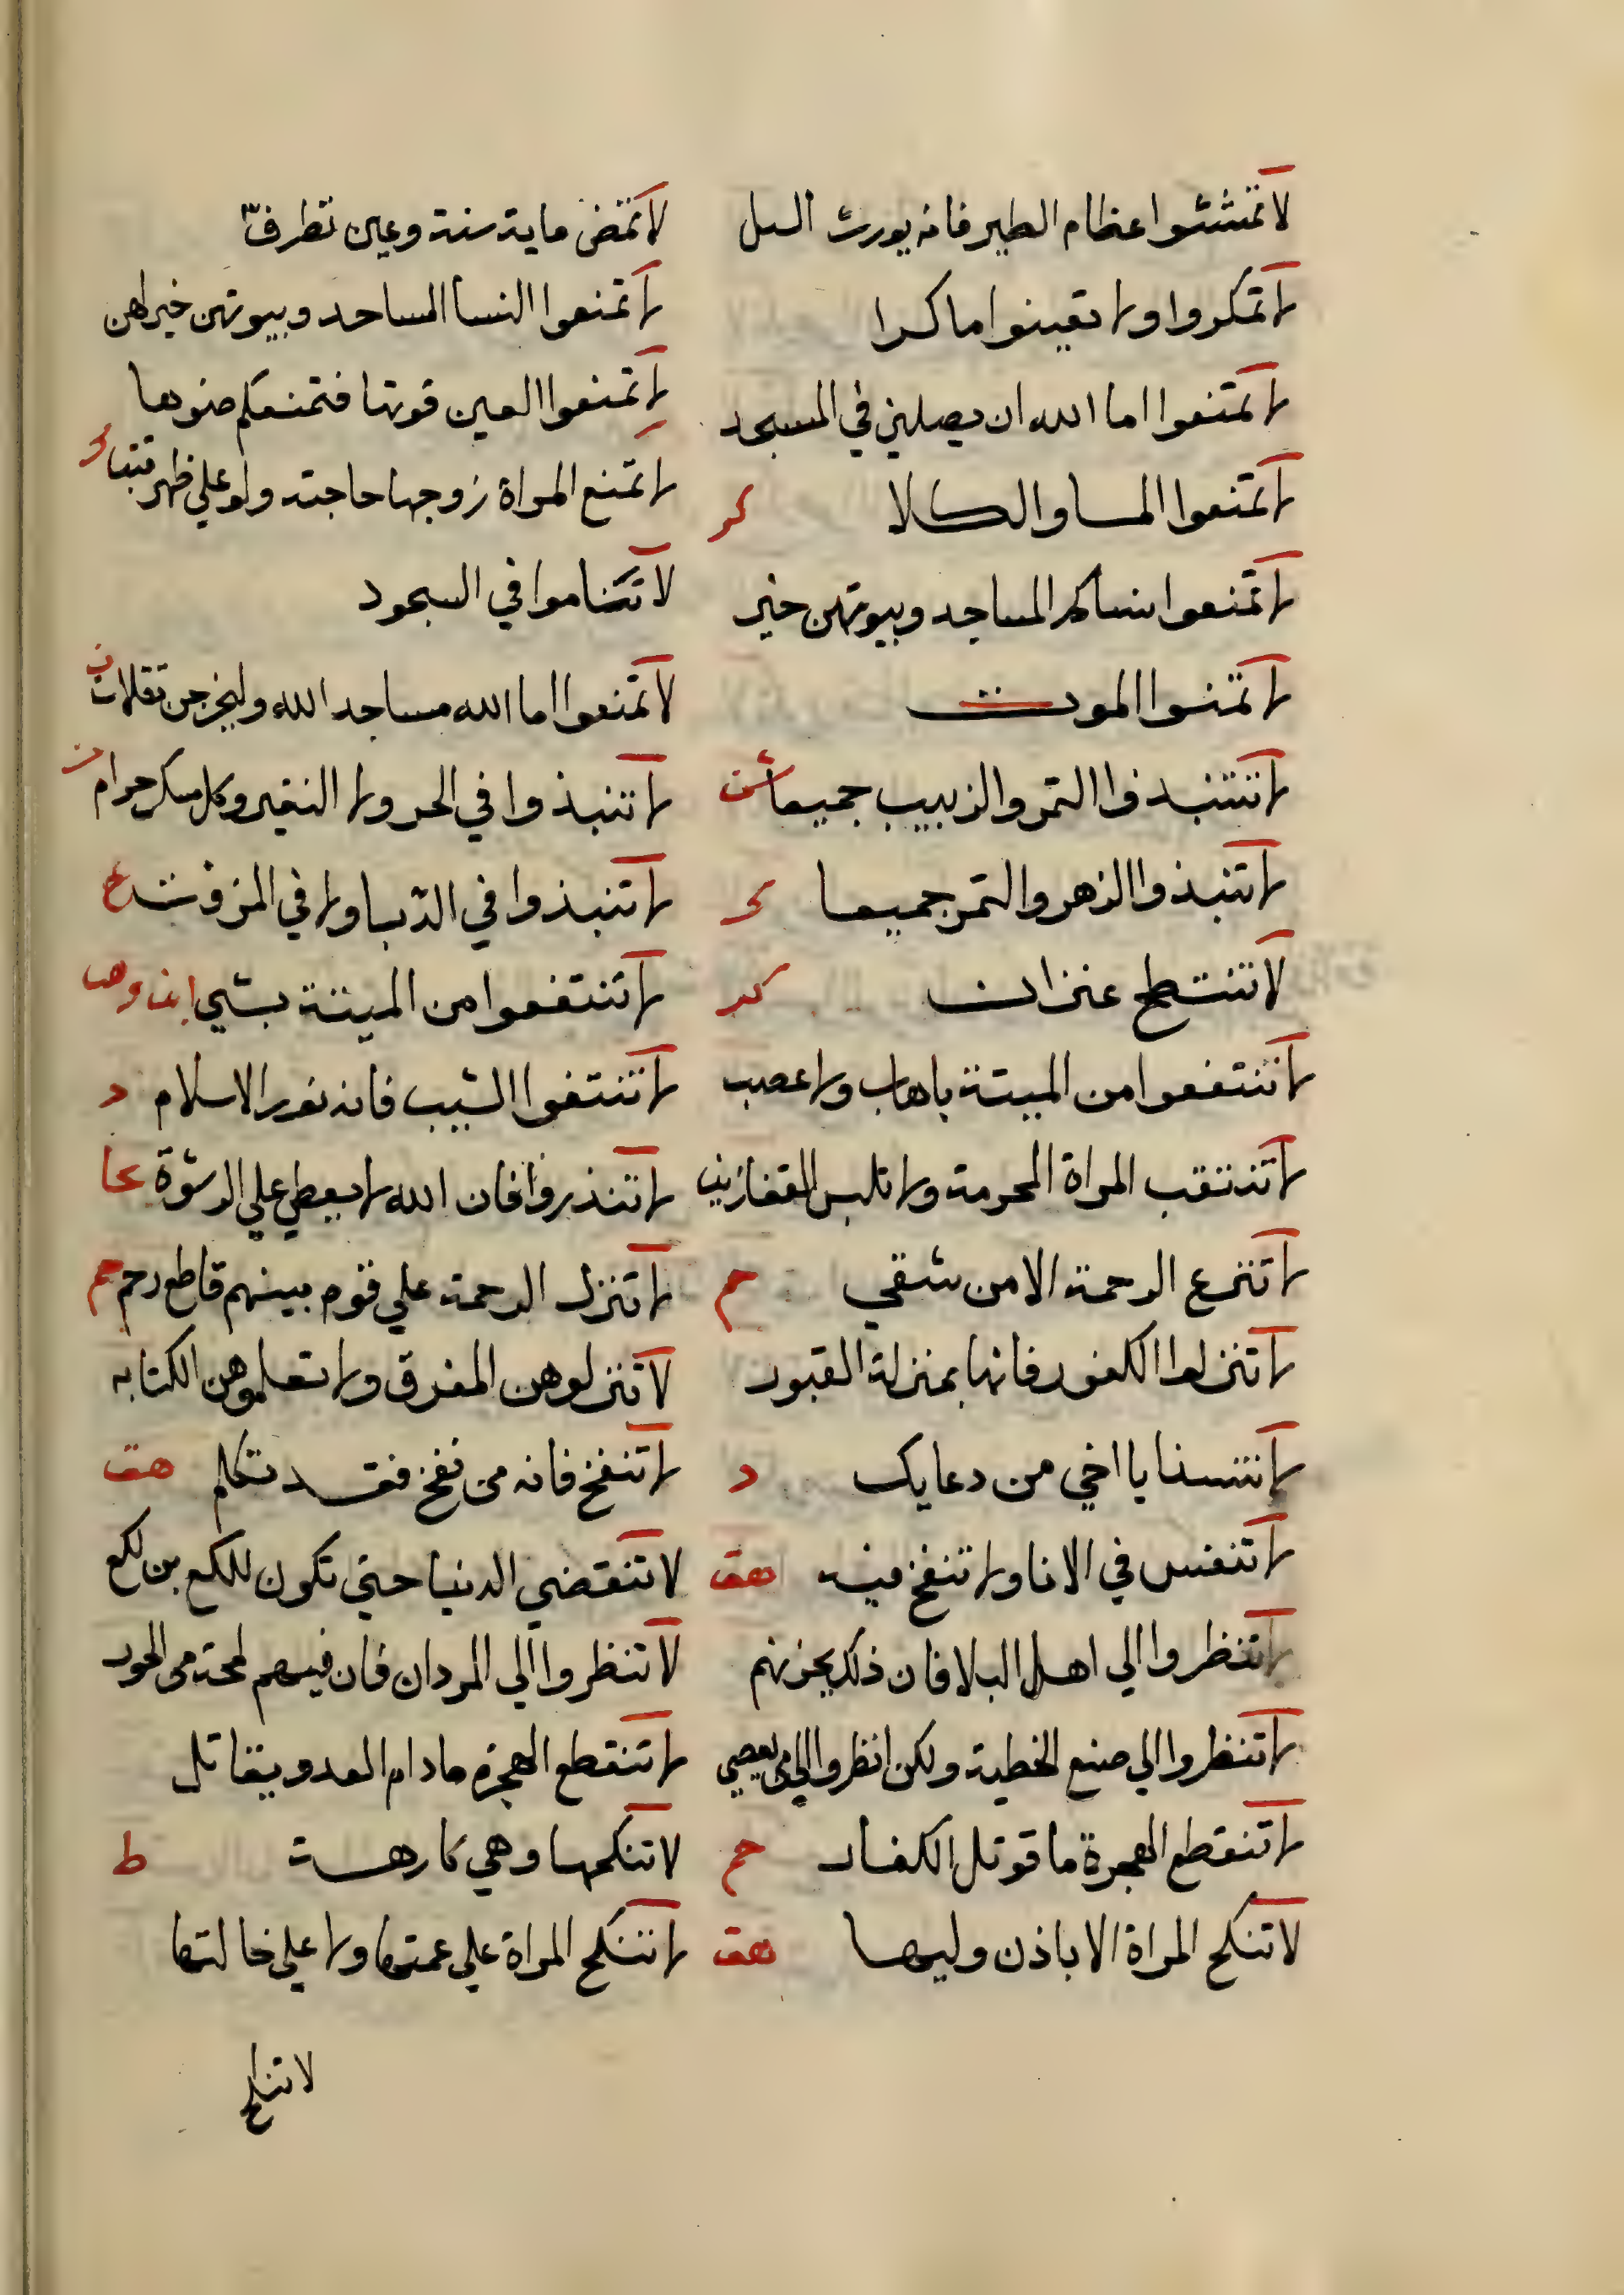 لا تمششوا عظام الطير فانه يورث السل
لا تمكروا ولا تعينوا ماكرا
لا تمنعوا اما الله ان يصلين في المسجد
لا تمنعوا الما والكلا كر
لا تمنعوا نساكم المساجد وبيوتهن خير
لا تمنوا الموت
لا تنتبذوا التمر والزبيب جميعا
لا تنبذوا الزهر والتمر جميعا
لا تنتطح عنزان كر
لا تنتفعوا من الميتة باهاب ولا عصب
لا تنتقب المراة المحرمة ولا تلبس القفازين
لا تنزع الرحمة الا من شقي حم
لا تنزلوا الكفور فانها بمنزلة القبور
لا تنسنا يا اخي من دعايك د
لا تنفس في الانا ولا تنفخ فيه هق
لا تنظروا الي اهل البلا فان ذلك يحزنهم
لا تنظروا الي صنع الخطية ولكن انظروا الي من يعصي
لا تنقطع الهجرة ما قوتل الكفار حم
لا تنكح المراة الا باذن وليها هق
لا تمض ماية سنة وعين تطرف
لا تمنعوا النسا المساحد وبيوتهن خير لهن
لا تمنعوا العين قوتها فتمنعكم ضوها
لا تمنع المراة زوجها حاجته ولو علي ظهر قتب
لا تناموا في السجود
لا تمنعوا اما الله مساجد الله وليخرجن تفلات
لا تنبذوا في الجر ولا النقير وكل مسكر حرام ن
لا تنبذوا في الدبا ولا في المزفت خ
لا تنتفعوا من الميتة بشي ابن وهب
لا تنتفوا الشيب فانه نور الاسلام د
لا تنذروا فان الله لا يعطي علي الرشوة
لا تنزل الرحمة علي قوم بينهم قاطع رحم
لا تنزلوهن الغرف ولا تعلموهن الكتابه
لا تنفخ فانه من نفخ فقد تكلم هق
لا تنقضي الدنيا حتي تكون للكع بن لكع
لا تنظروا الي المردان فان فيهم لمحة من الحور
لا تنقطع الهجرة ما دام العدو يقاتل
لا تنكحها وهي كارهة ط
لا تنكح المراة علي عمتها ولا علي خالتها
لا تنكح